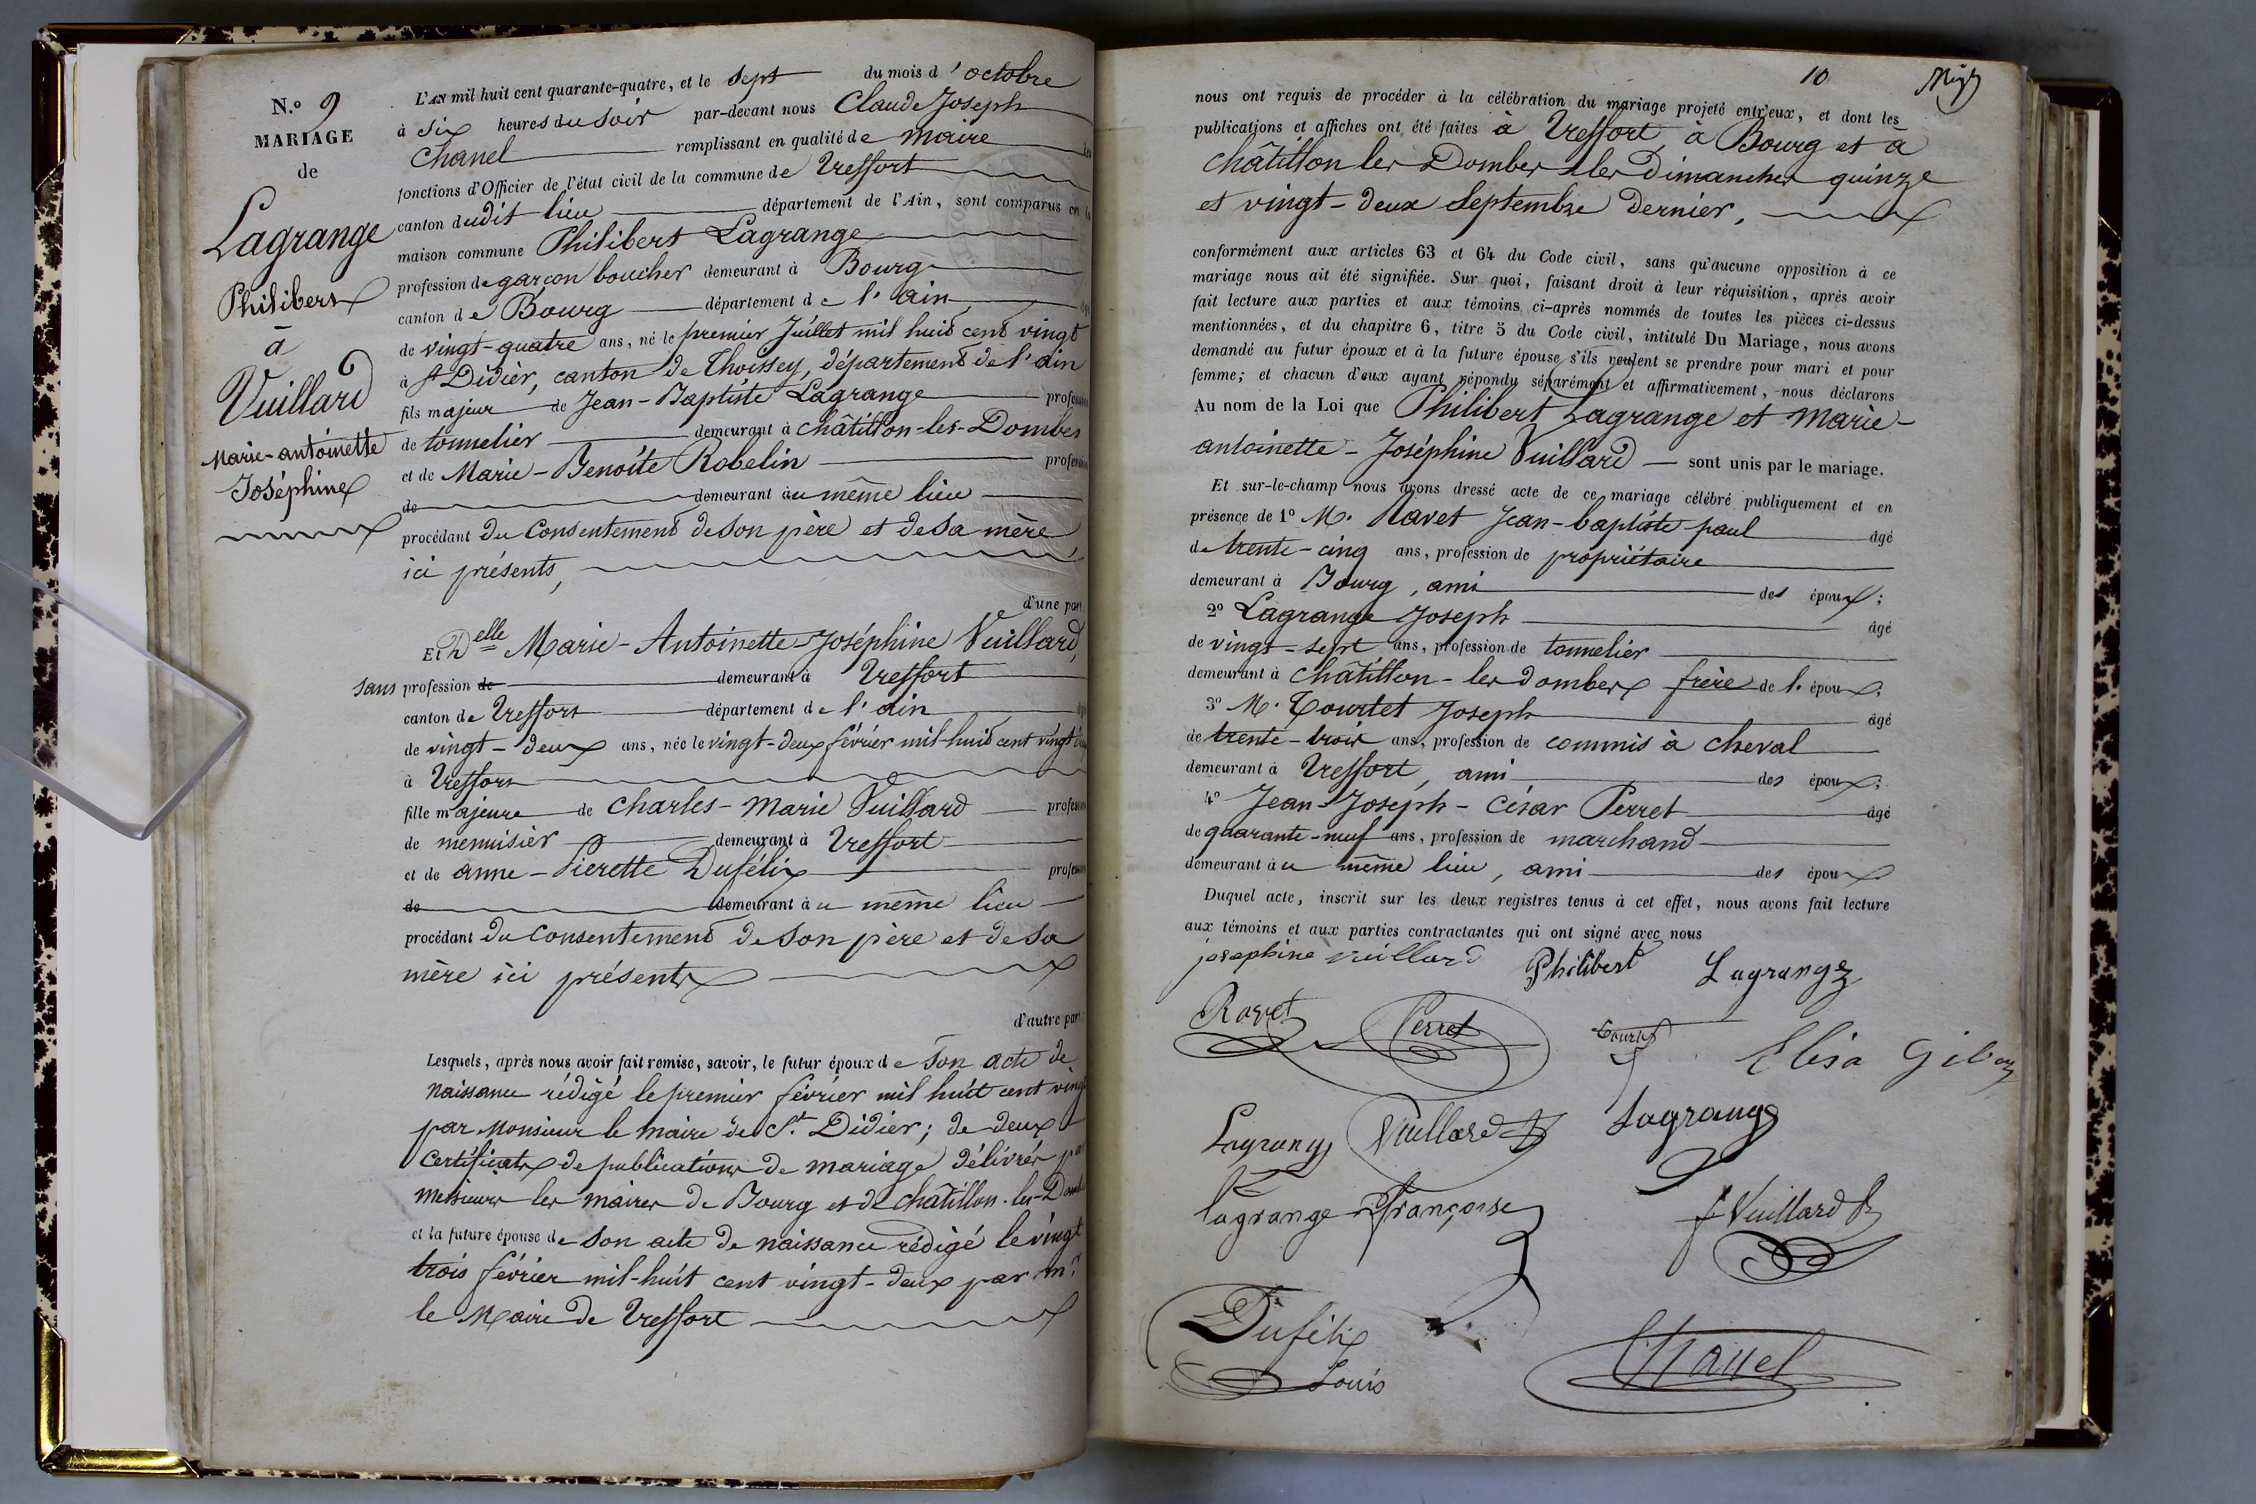 N.º 9
MARIAGE
de
Lagrange
Philibert
à
Vuillard
Marie-antoinette
Joséphine
L'AN mil huit cent quarante-quatre, et le sept du mois d'octobre
à six heures du soir par-devant nous Claude Joseph
Chanel remplissant en qualité de maire les
fonctions d'Officier de l'état civil de la commune de Treffort
canton dudit lieu département de l'Ain, sont comparus en la
maison commune Philibert Lagrange
profession de garçon boucher demeurant à Bourg
canton de Bourg département de l'ain
de vingt-quatre ans, né le premier Juillet mil huit cent vingt
à St Didier, canton de Thoissey, département de l'ain
fils majeur de Jean-Baptiste Lagrange profession
de tonnelier demeurant à châtillon-les-Dombes
et de Marie-Benoite Robelin profession
de demeurant au même lieu
procédant du consentement de son père et de sa mère
ici présents,
d'une part
Et Delle Marie-Antoinette-Joséphine Vuillard,
sans profession de demeurant à Treffort
canton de Treffort département de l'ain
de vingt-deux ans, née le vingt-deux février mil huit cent vingt deux
à Treffort
fille majeure de Charles-Marie Vuillard profession
de menuisier demeurant à Treffort
et de anne-Pierette Dufélix profession
de demeurant au même lieu
procédant du consentement de son père et de sa
mère ici présents
d'autre part
Lesquels, après nous avoir fait remise, savoir, le futur époux de son acte de
naissance rédigé le premier février mil huit cent vingt
par Monsieur le maire de St. Didier; de deux
certificats de publications de mariage délivrés par
messieurs les maires de Bourg et de châtillon-les-Dombes
et la future épouse de son acte de naissance rédigé le vingt
trois février mil-huit cent vingt-deux par Mr.
le Maire de Treffort
10
nous ont requis de procéder à la célébration du mariage projeté entr'eux, et dont les
publications et affiches ont été faites à Treffort, à Bourg et à
châtillon les Dombes les Dimanches quinze
et vingt-deux septembre dernier,
conformément aux articles 63 et 64 du Code civil, sans qu'aucune opposition à ce
mariage nous ait été signifiée. Sur quoi, faisant droit à leur réquisition, après avoir
fait lecture aux parties et aux témoins ci-après nommés de toutes les pièces ci-dessus
mentionnées, et du chapitre 6, titre 5 du Code civil, intitulé Du Mariage, nous avons
demandé au futur époux et à la future épouse s'ils veulent se prendre pour mari et pour
femme; et chacun d'eux ayant répondu séparément et affirmativement, nous déclarons
Au nom de la Loi que Philibert Lagrange et Marie-
antoinette-Joséphine Vuillard sont unis par le mariage.
Et sur-le-champ nous avons dressé acte de ce mariage célébré publiquement et en
présence de 1º M. Ravet Jean-baptiste paul âgé
de trente-cinq ans, profession de propriétaire
demeurant à Bourg, ami des époux;
2º Lagrange Joseph âgé
de vingt-sept ans, profession de tonnelier
demeurant à châtillon-les dombes frère de l'époux;
3º M. Tourtet Joseph âgé
de trente-trois ans, profession de commis à cheval
demeurant à Treffort, ami des époux;
4º Jean-Joseph-César Perret âgé
de quarante-neuf ans, profession de marchand
demeurant au même lieu, ami des époux
Duquel acte, inscrit sur les deux registres tenus à cet effet, nous avons fait lecture
aux témoins et aux parties contractantes qui ont signé avec nous
josephine vuillard Philibert Lagrange
Ravet Perret Tourtet Elisa
Lagrange Vuillard Lagrange
lagrange françoise J Vuillard
Dufélix
Louis
Chanel